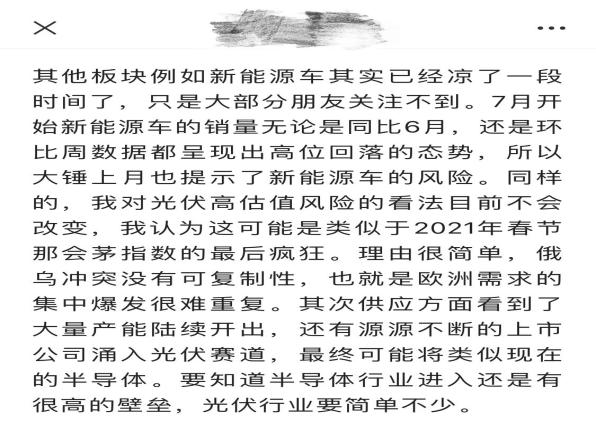 其他板块例如新能源车其实已经凉了一段
时间了，只是大部分朋友关注不到。7月开
始新能源车的销量无论是同比6月，还是环
比周数据都呈现出高位回落的态势，所以
大锤上月也提示了新能源车的风险。同样
的，我对光伏高估值风险的看法目前不会
改变，我认为这可能是类似于2021年春节
那会茅指数的最后疯狂。理由很简单，俄
乌冲突没有可复制性，也就是欧洲需求的
集中爆发很难重复。其次供应方面看到了
大量产能陆续开出，还有源源不断的上市
公司涌入光伏赛道，最终可能将类似现在
的半导体。要知道半导体行业进入还是有
很高的壁垒，光伏行业要简单不少。